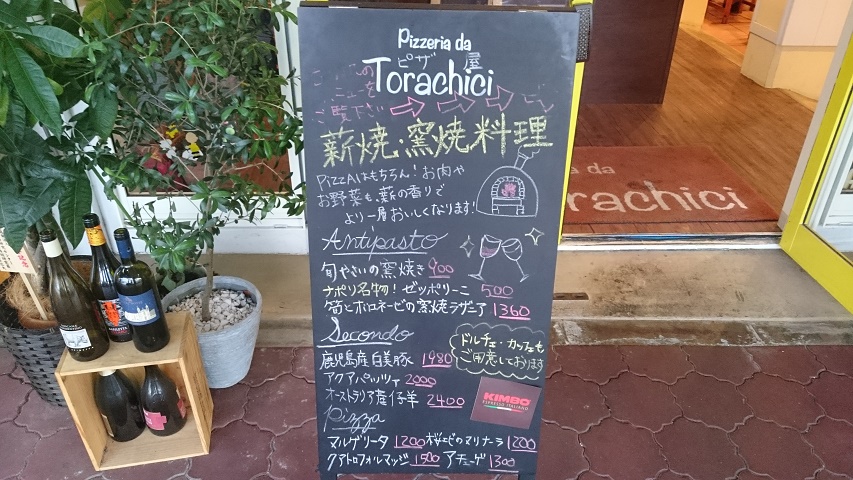 Pizzeria da
ピザ屋
Torachici
ご覧下さい
薪焼・窯焼料理
PizzAはもちろん!お肉や
お野菜も、薪の香りで
より一層おいしくなります!
Antipasto
旬やさいの窯焼き 900
ナポリ名物!ゼッポリーニ 500
筍とボロネーゼの窯焼ラザニア 1360
Secondo
ドルチェ・カフェも
ご用意しております
鹿児島産白美豚 1980
アクアパッツァ 2000
オーストラリア産仔羊 2400
KIMBO
ESPRESSO ITALIANO
Pizza
マルゲリータ 1200 桜エビのマリナーラ 1200
クアトロフォルマッジ 1500 アチューゲ 1300
da
orachici